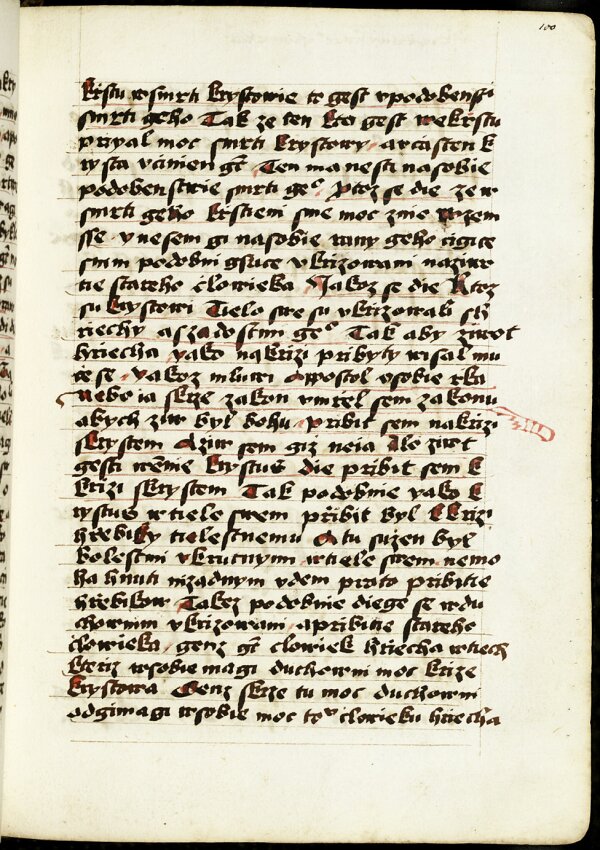 100
krstu w smrti krystowie to gest w podobensi
smrti geho Tak ze ten kto gest we krstu
priyal moc smrti krystowy a vcasten k
rysta vcinien gt Ten ma nesti na sobie
podobenstwie smrti geo Ptoz se die ze w
smrti geho krstieni sme moc zme wzem
sse y nesem gi na sobie rany geho cigice
smm podobni gsuce vkrizowani naziwo
tie stareho clowieka Jakoz se die Ktoz
su krystowi Tielo swe su vkrizowali s
riechy a s zadostmi geo Tak aby ziwot
hriecha yako na krizi pribyty wisal mu
ce se yakoz mluwi Apostol o sobie rka
Nebo ia skrze zakon vmrel sem zakonu
abych ziw byl bohu pribit sem na krizi
s krystem A ziw sem giz ne ia Ale ziwot
gesti we mnie krystus die pribit sem k
krizi s krystem Tak podobnie yako k
rystus w tiele swem přibit byl k krizi
hrebiky tielestnemu A tu suzen byl
bolestmi vkrutnymi w tiele swem nemo
ha hnuti nizadnym vdem proto pribitie
hrebikow Takez podobnie diege se w du
chownim vkrizowani a pribitie stareho
clowieka genz gt clowiek hriecha w tiech
kteriz w sobie magi duchowni moc krize
krystowa Genz skrze tu moc duchowni
odgimagi w sobie moc to clowieku hriecha